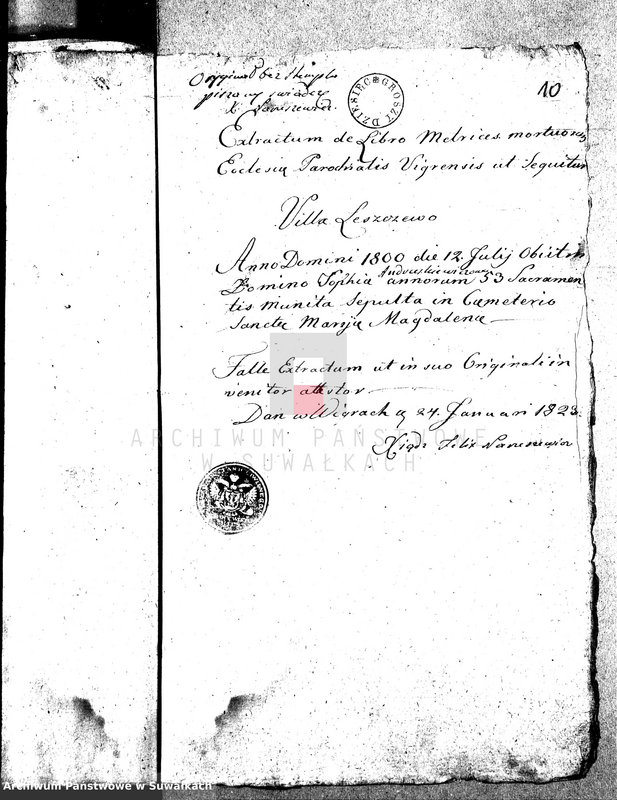 Oryginał bez stempla
pisany świadczy
X.
DZIESIĘC GROSZY
10
Extractum de Libro Metrices mortuorum
Ecclesiæ Parochialis Vigrensis ut Sequitur
Villa Leszczewo
Anno Domini 1800 die 12. Julij Obiit in
Domino Sophia Andruszkiewiczowa annorum 53 Sacramen
tis munita Sepulta in Cæmeterio
Sanctæ Maryæ Magdalenæ
Talle Extractum ut in suo Originali in
venitor attestor
Dan w Wigrach d 24. Januari 1823.
Xiądz Felix
ARCHIWUM PAŃSTWOWE
W SUWAŁKACH
Archiwum Państwowe w Suwałkach